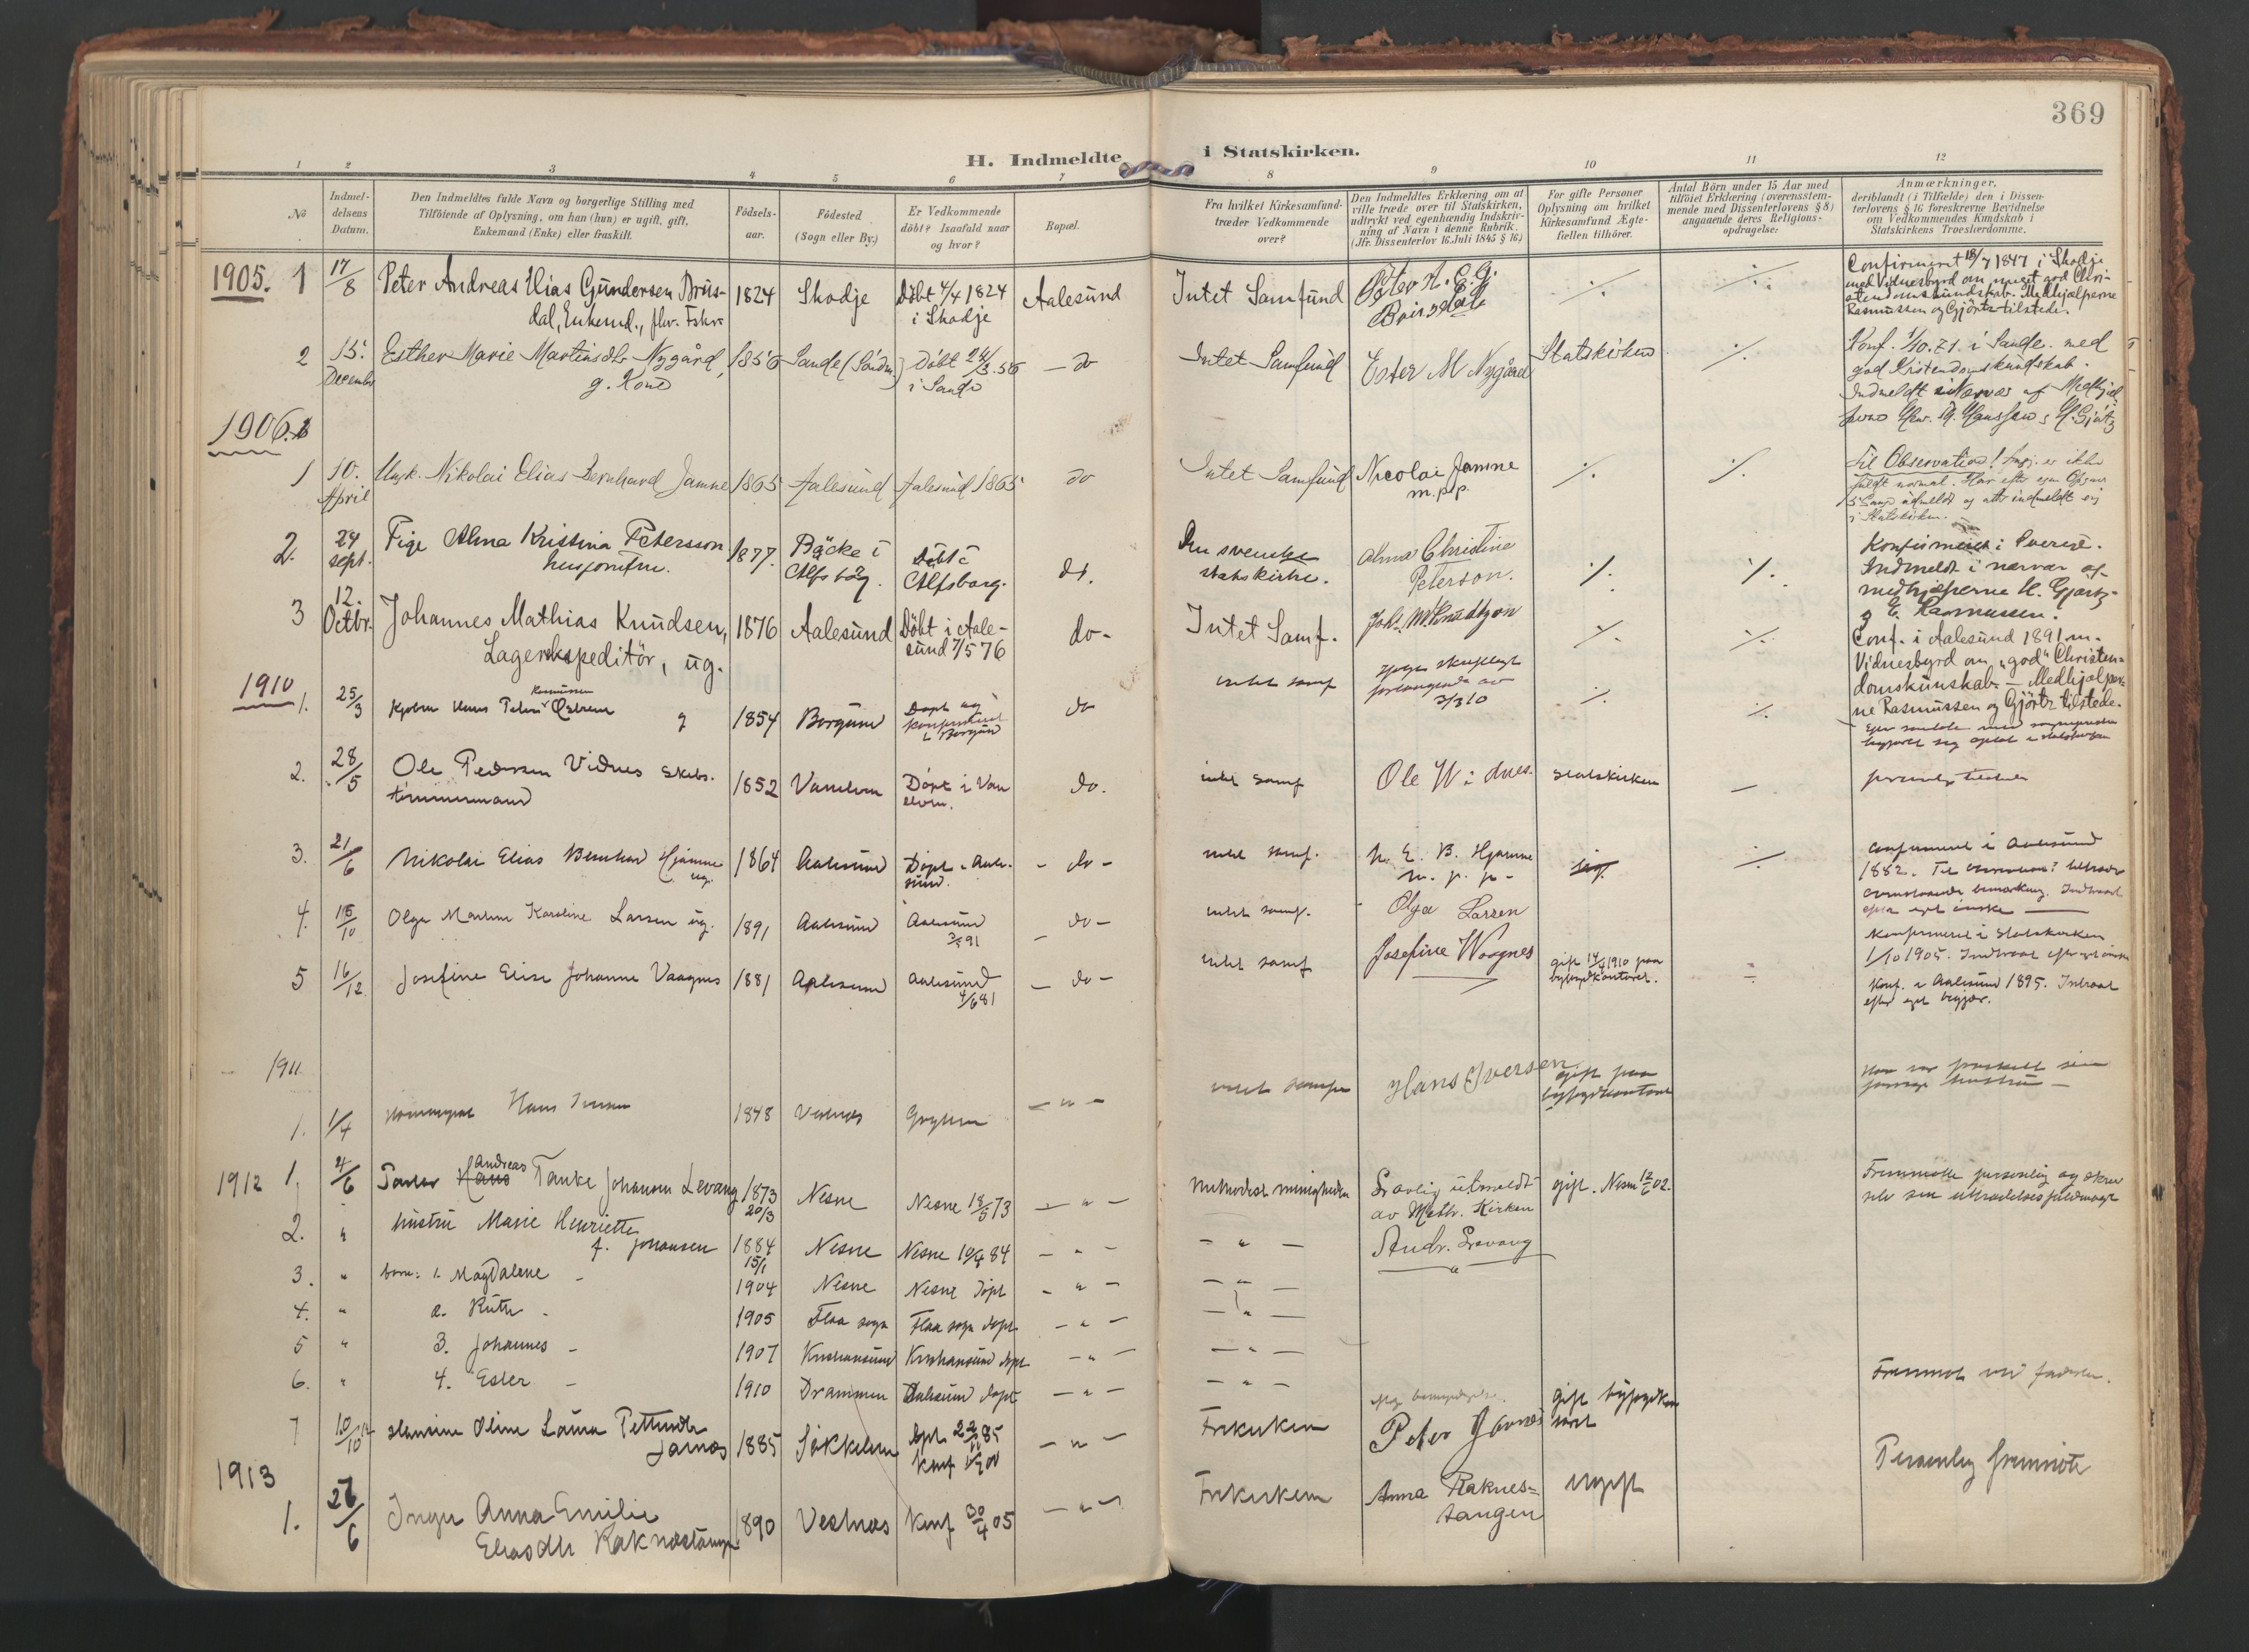 369
H. Indmeldte i Statskirken.
1 2 3 4 5 6 7 8 9 10 11 12
No
Indmel-
delsens
Datum.
Den Indmeldtes fulde Navn og borgerlige Stilling med
Tilföiende af Oplysning, om han (hun) er ugift, gift,
Enkemand (Enke) eller fraskilt.
Födsels-
aar.
Födested
(Sogn eller By.)
Er Vedkommende
döbt? Isaafald naar
og hvor?
Bopæl.
Fra hvilket Kirkesamfund
træder Vedkommende
over?
Den Indmeldtes Erklæring om at
ville træde over til Statskirken,
udtrykt ved egenhændig Indskriv-
ning af Navn i denne Rubrik.
(Jfr. Dissenterlov 16. Juli 1845 § 16)
For gifte Personer
Oplysning om hvilket
Kirkesamfund Ægte-
fællen tilhörer.
Antal Börn under 15 Aar med
tilföiet Erklæring (overensstem-
mende med Dissenterlovens § 8)
angaaende deres Religions-
opdragelse.
Anmærkninger,
deriblandt (i Tilfælde) den i Dissen-
terlovens § 16 foreskrevne Bevidnelse
om Vedkommendes Kundskab i
Statskirkens Troeslærdomme.
1905. 1 17/8 Peter Andreas Elias Gundersen Brus-
dal, Enkemd., 1824 Skodje Döbt 4/4 1824
i Skodje Aalesund Intet Samfund Peter A. E. G.
Brusdal ./. ./.
Confirmeret 18/7 1847 i Skodje
med Vidnesbyrd om meget god Chri-
stendomskundskab. Medhjælperne
Rasmussen og Gjörtz tilstede.
2 15. Decembr Esther Marie Martinsdtr Nygård,
g. Kone 1856 Sande (Söndm) Döbt
i Sande do Intet Samfund Ester M Nygård Statskirken ./.
Konf. 1/10.71. i Sande med
god Kristendomskundskab.
Indmeldt i Nærvær af Medhjæl
1906.
1 10. April Ungk. Nikolai Elias Bernhard Jamne 1865 Aalesund Aalesund 1865 do Intet Samfund Nicolai Jamne
m.p.p. ./. ./.
Til Observation! er ikke
fuldt normal. Har efter
udmeldt og atter indmeldt sig
i Statskirken.
2. 24 sept. Pige Alma Kristina Petersson
1877. Bäcke i
Elfsborg. Döbt i
Elfsborg. do. Den svenske
statskirke. Alma Christine
Peterson. ./. ./.
Konfirmeret i Sverige.
Indmeldt i nærvær af
medhjælperne H. Gjørtz
og E. Rasmussen.
3 12. Octbr. Johannes Mathias Knudsen,
Lagerekspeditör, ug. 1876 Aalesund Döbt i Aale-
sund 7/5 76 do- Intet Samf. Joh. M. Knudtzon ./. ./.
Conf. i Aalesund 1891 m.
Vidnesbyrd om „god" Christen-
domskundskab. - Medhjælper-
ne Rasmussen og Gjörtz tilstede.
1910
1. 25/3 Hans Peter Rasmussen g 1854 Borgund Døpt og
konfirmeret
i Borgund do intet samf ./. ./.
2. 28/5 Ole Pedersen Vidnes Skibs-
tømmermand 1852 Vanelven Døpt i Van
elven. do. intet samf Ole Widnes. Statskirken —
3. 21/6 Nikolai Elias Bernhard Hjamne
ug. 1864 Aalesund Døpt i Aale-
sund. - do - intet samf. N. E. B. Hjamne
m. p. p. ./.
Confirmeret i Aalesund
1882.
4. 15/10 Olga Karoline Larsen ug. 1891 Aalesund Aalesund do - intet samf. Olga Larsen
Konfirmeret i Statskirken
1/10 1905. Indtraadt efter eget ønske
5 16/12 Josefine Elise Johanne Vaagnes 1881 Aalesund Aalesund
4/6 81 do - intet samf Josefine Waagnes gift 14/4 1910 paa
byfogdkontoret.
Konf. i Aalesund 1895. Indtraadt
efter eget begjær.
1911
1. 1/4 Hans Iversen 1848 Vestnes - " - Hans Iversen gift paa
byfogdkontoret
1912 1. 4/6 Andreas Tanke Johansen Levang 1873
20/3 Nesne Nesne 18/5 73 - " - Methodist menigheden Lovlig udmeldt
av Meth. Kirken gift. Nesne 12/6 02.
Fremmødte personlig og skrev
2. " hustru Marie Henriette
f. Johansen 1884
15/1 Nesne Nesne 10/4 84 - " - - " - Andr. Levang
3. " børn: 1. Magdalene - 1904 Nesne Nesne døpt - " - - " -
4. " 2. Ruth - 1905 Flaa sogn Flaa sogn døpt - " - - " -
5 " 3. Johannes - 1907 Kristiansund Kristiansund døpt - " - - " -
6. " 4. Ester - 1910 Drammen Aalesund døpt - " - - " -
7 10/10 12 Hansine Oline Laura Pettersdtr
Jarnæs 1885 Søkkelven - " - Frikirken Peter Jarnes gift byfogdkon
toret
1913
1. 27/6 Inga Anna Emilie
Eliasdtr Raknestangen 1890 Vestnes Konf 30/4 05 - " - Frikirken Anna Raknes-
tangen ugift
Personlig fremmøte